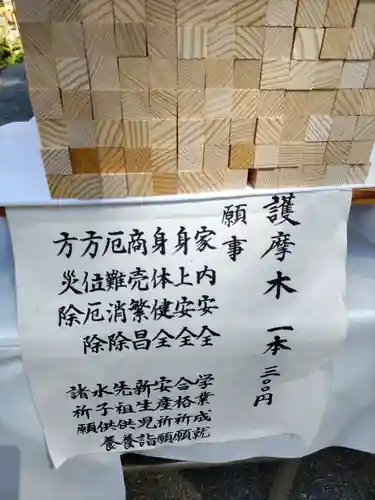 護摩木 一本 三〇〇円
願事
家内安全
身上安全
身体健全
商売繁昌
厄難消除
方位厄除
方災除
学業成就
合格祈願
安産祈願
新生児詣
先祖供養
水子供養
諸祈願